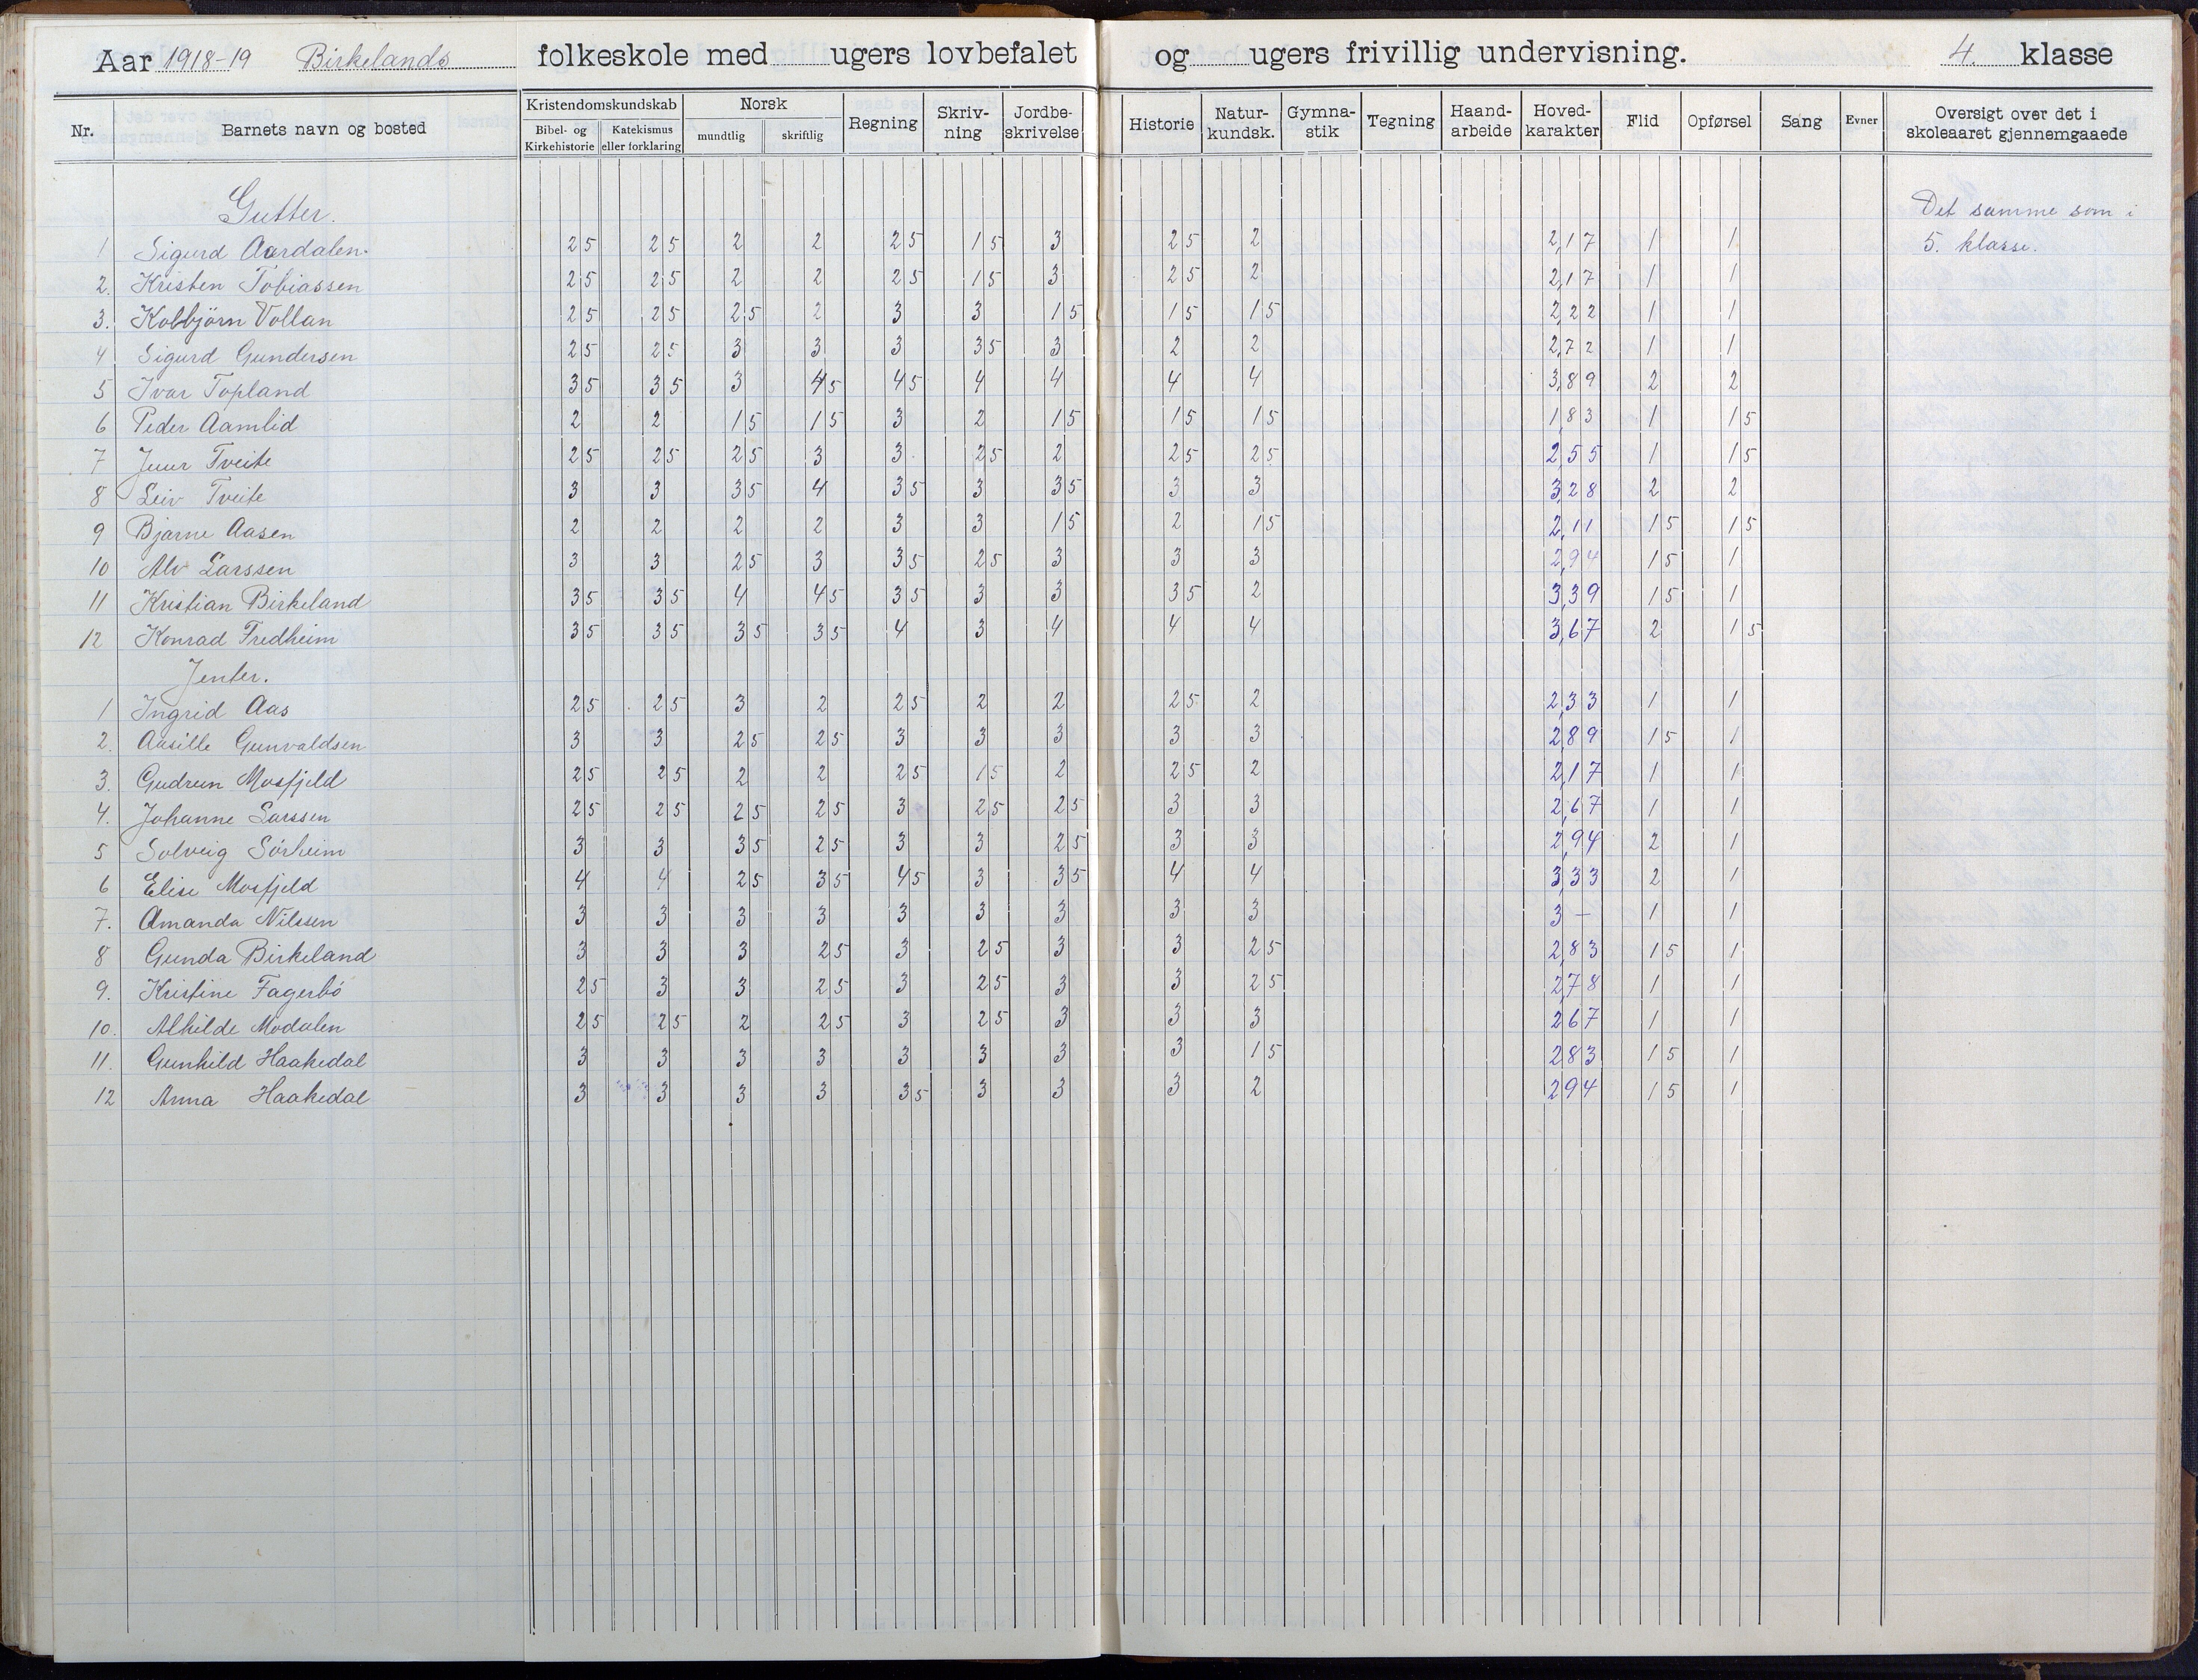 Aar 1918-19 Birkelands folkeskole med ugers lovbefalet og ugers frivillig undervisning. 4. klasse
Nr. Barnets navn og bosted Kristendomskundskab Bibel- og Kirkehistorie Katekismus eller forklaring Norsk mundtlig skriftlig Regning Skriv-ning Jordbe-skrivelse Historie Natur-kundsk. Gymna-stik Tegning Haand-arbeide Hoved-karakter Flid Opførsel Sang Evner Oversigt over det i skoleaaret gjennemgaaede
Gutter. Det samme som i
1 Sigurd Aardalen. 25 25 2 2 25 15 3 25 2 2,17 1 1 5. klasse.
2. Kristen Tobiassen 25 25 2 2 25 15 3 25 2 2,17 1 1
3. Kolbjörn Vollan 25 25 25 2 3 3 15 15 15 2,22 1 1
4 Sigurd Gundersen 25 25 3 3 3 35 3 2 2 2,72 1 1
5 Ivar Topland 35 35 3 45 45 4 4 4 4 3,89 2 2
6 Peder Aamlid 2 2 15 15 3 2 15 15 15 183 1 15
7 Tveite 25 25 25 3 3 25 2 25 25 255 1 15
8 Leiv Tveite 3 3 35 4 35 3 35 3 3 328 2 2
9 Bjarne Aasen 2 2 2 2 3 3 15 2 15 2,11 15 15
10 Alv Larssen 3 3 25 3 35 25 3 3 3 2,94 15 1
11 Kristian Birkeland 35 35 4 45 35 3 3 35 2 3,39 15 1
12 Konrad Fredheim 35 35 35 35 4 3 4 4 4 3,67 2 15
Jenter.
1 Ingrid Aas 25 25 3 2 25 2 2 25 2 2,33 1 1
2. Aasille Gunvaldsen 3 3 25 25 3 3 3 3 3 289 15 1
3. Gudrun Mosfjeld 25 25 2 2 25 15 2 25 2 2,17 1 1
4. Johanne Larssen 25 25 25 25 3 25 25 3 3 2,67 1 1
5 Solveig Sörheim 3 3 35 25 3 3 25 3 3 2,94 2 1
6 Elise Mosfjeld 4 4 25 35 45 3 35 4 4 3,33 2 1
7. Amanda Nilssen 3 3 3 3 3 3 3 3 3 3 – 1 1
8 Gunda Birkeland 3 3 3 25 3 25 3 3 25 2,83 15 1
9. Kristine Fagerbö 25 3 3 25 3 25 3 3 25 2,78 1 1
10. Alhilde Modalen 25 25 2 25 3 25 3 3 3 267 1 1
11. Gunhild Haakedal 3 3 3 3 3 3 3 3 15 283 15 1
12 Anna Haakedal 3 3 3 3 35 3 3 3 2 294 15 1